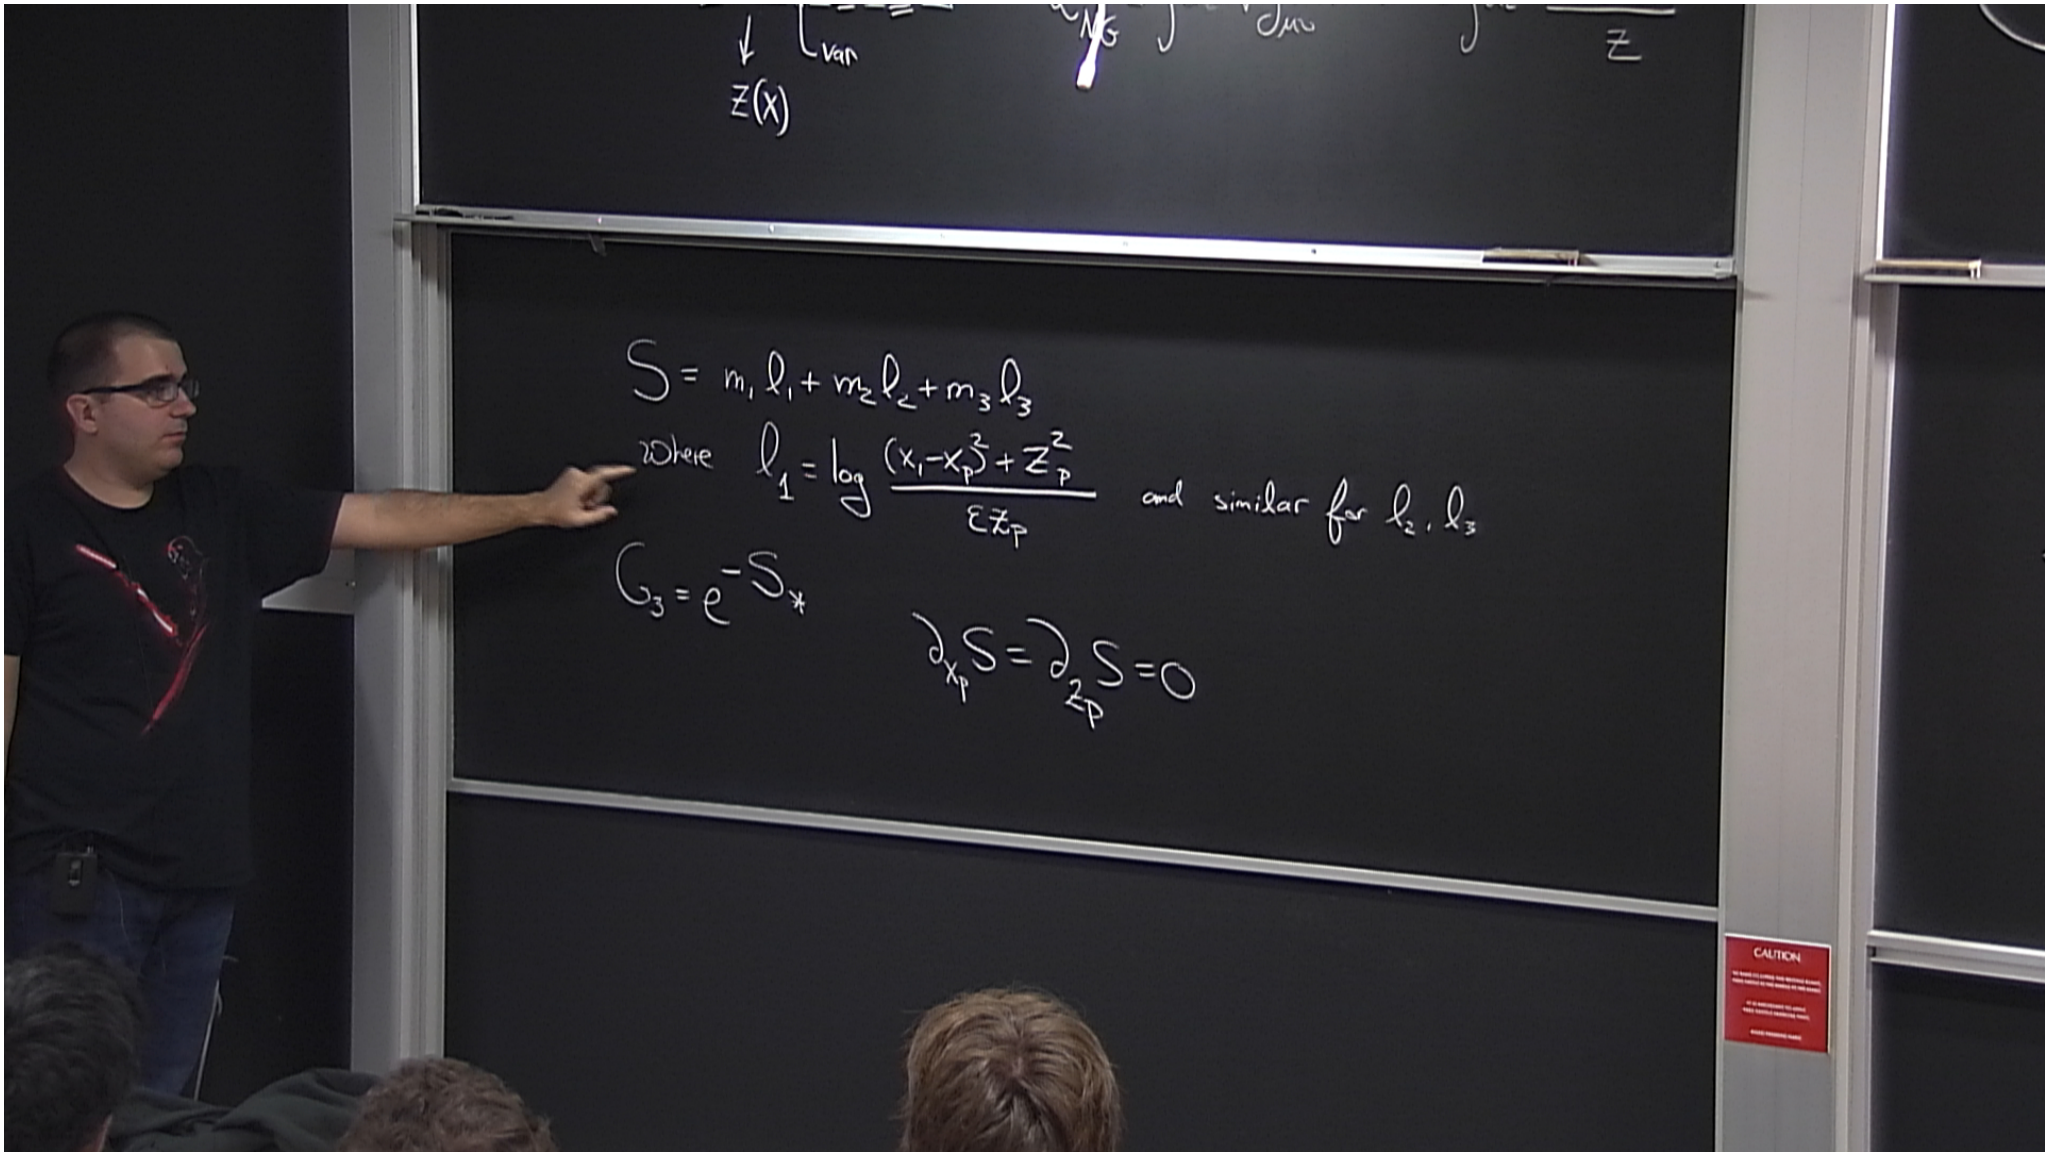 Z
Var
NG
Z(x)
S = m₁ℓ₁ + m₂ℓ₂ + m₃ℓ₃
Where ℓ₁ = log ((x₁-x_p)² + Z_p²) / (εZ_p) and similar for ℓ₂, ℓ₃
G₃ = e^{-S_*}
∂_{x_p} S = ∂_{z_p} S = 0
CAUTION